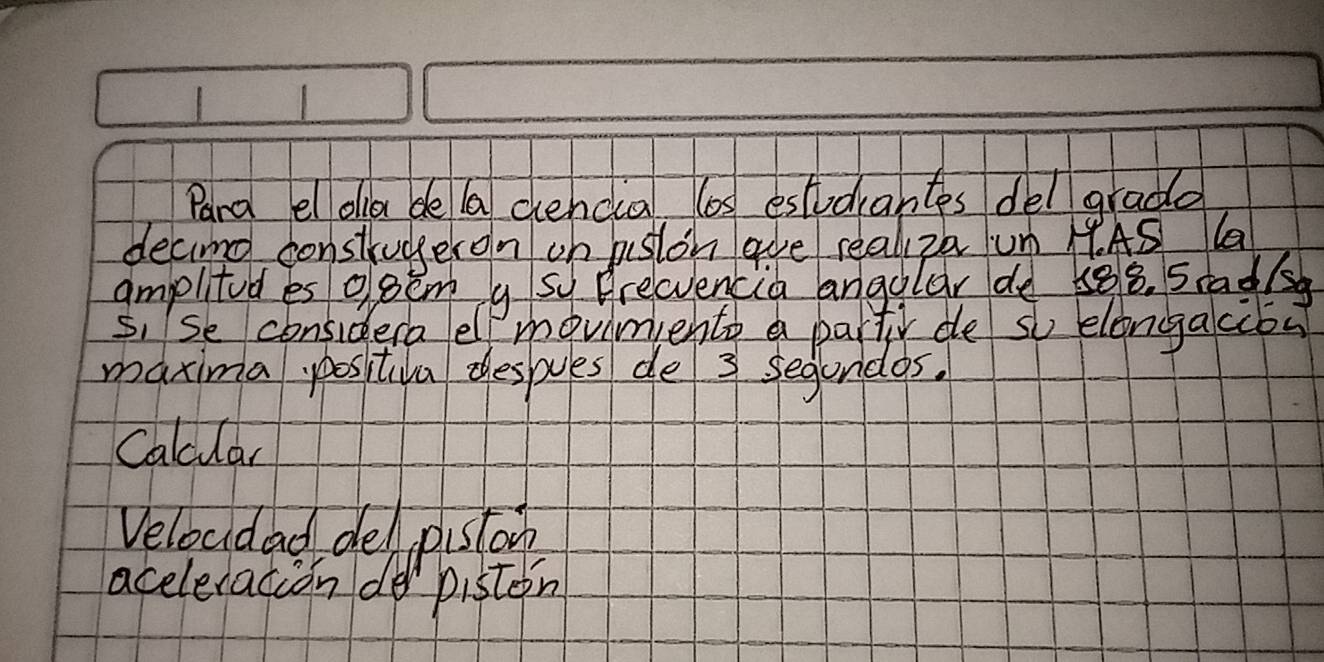 Para el dia de la ciencia los estudiantes del grado
decimo construyeron un pistón que realiza un M.A.S la
amplitud es 0,8cm y su frecuencia angular de 188.5rad/sg
Si se considera el movimiento a partir de su elongación
maxima positiva despues de 3 segundos.
Calcular
Velocidad del piston
aceleración del pistón